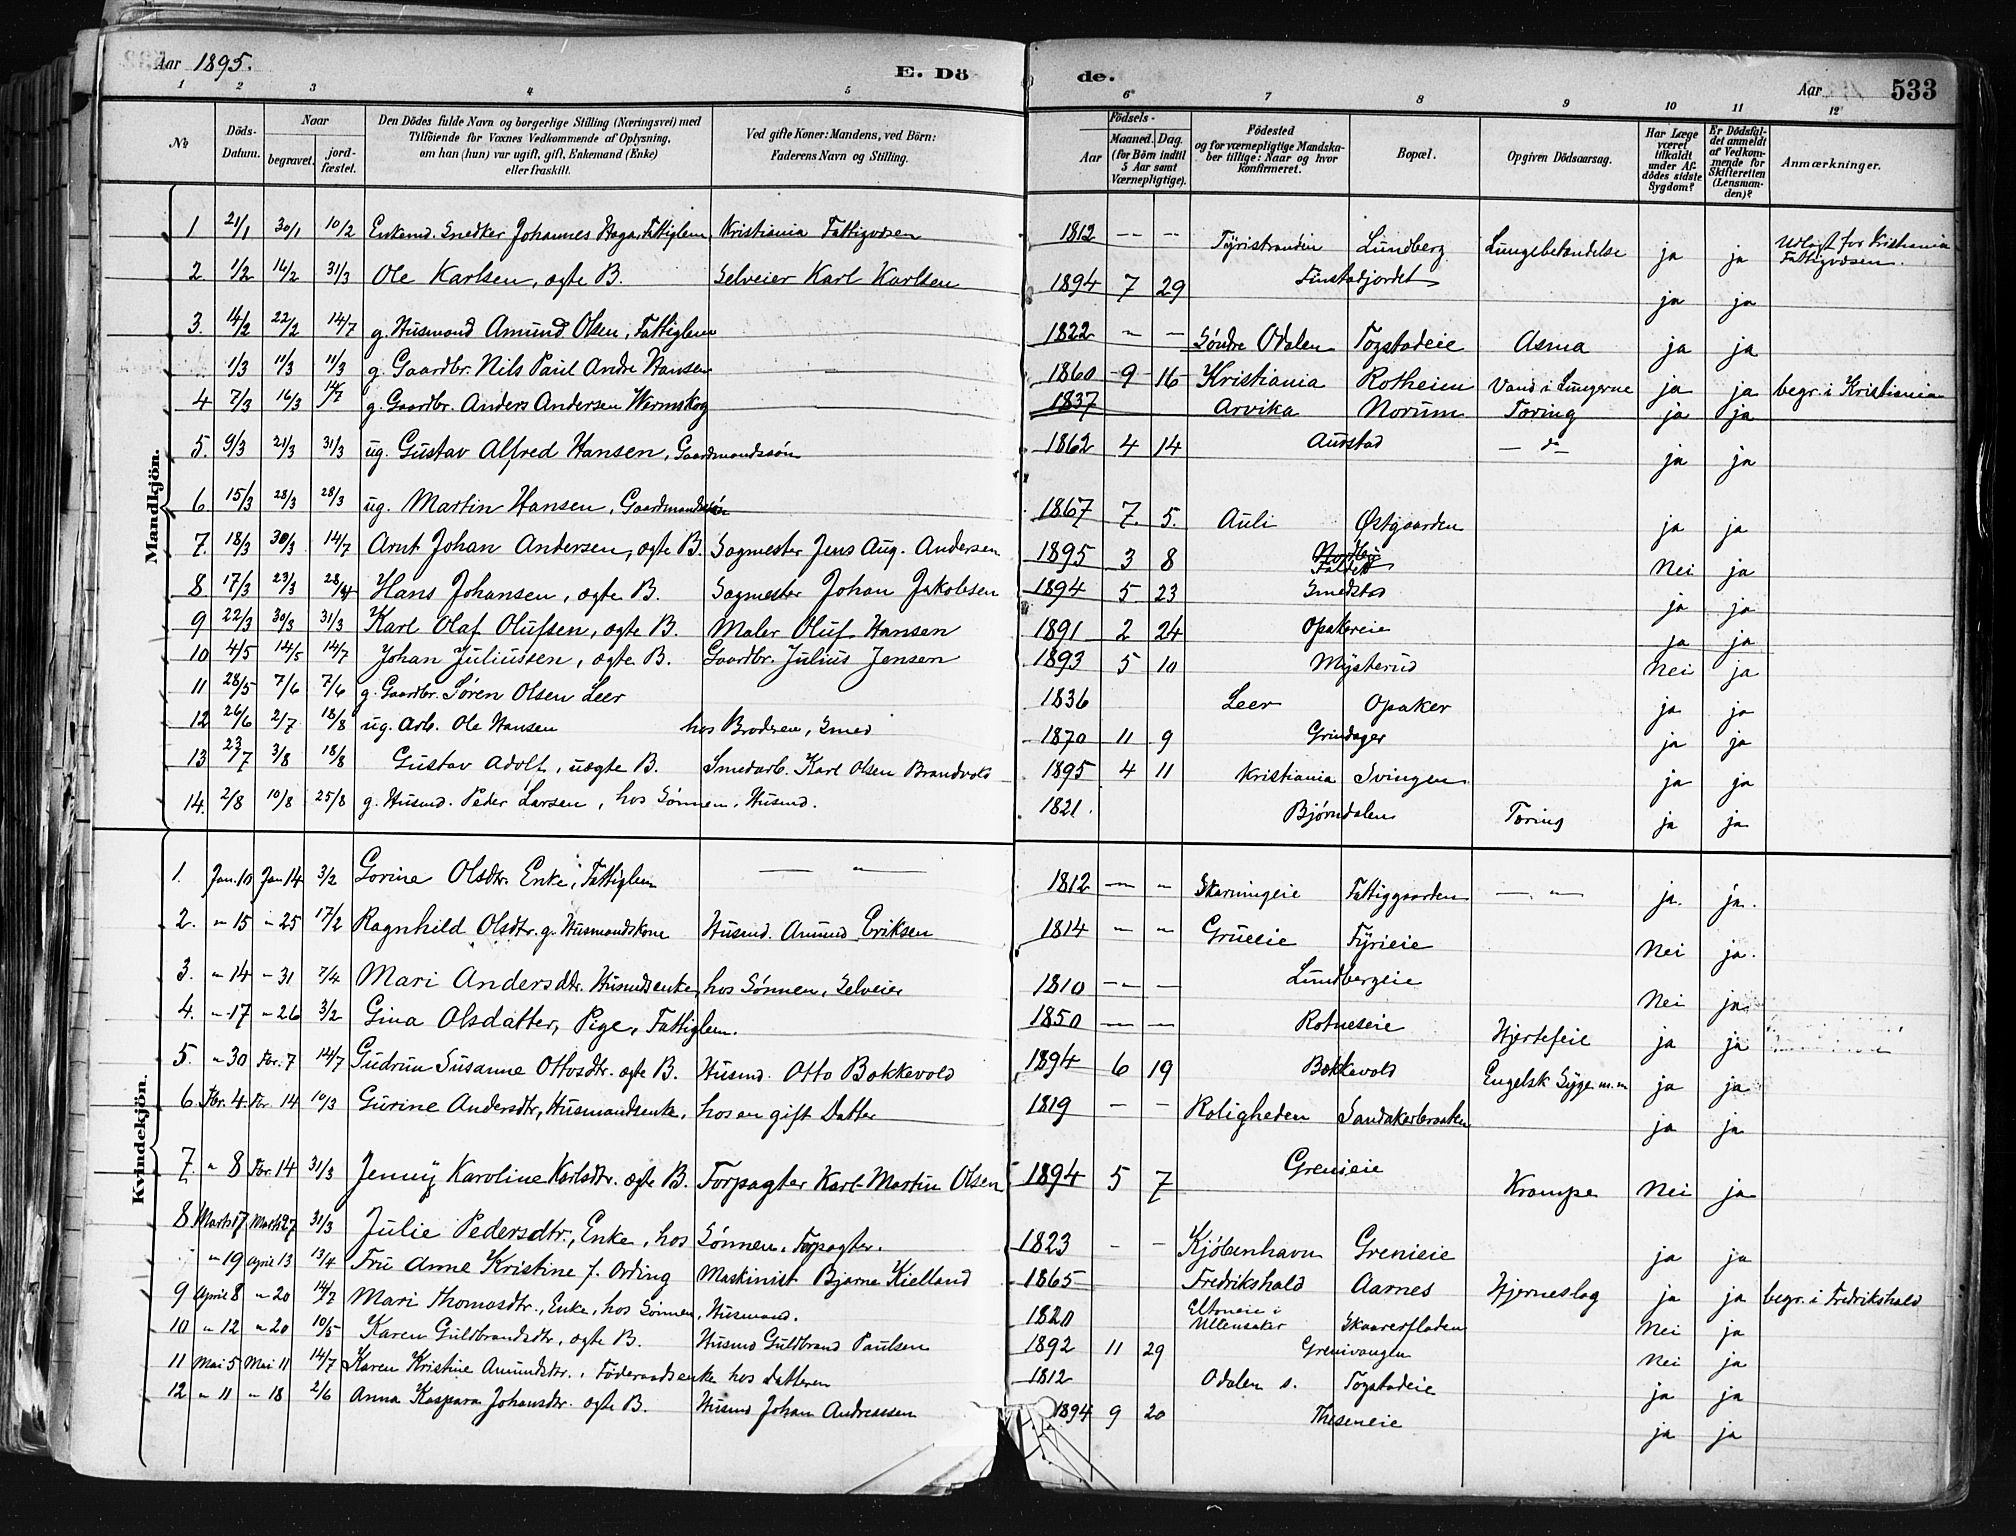 Aar 1895. E. Dö de. Aar 533
1 2 3 4 5 6 7 8 9 10 11 12
No Döds-Datum. Naar begravet. jord-fæstet. Den Dödes fulde Navn og borgerlige Stilling (Næringsvei) med Tilföiende for Voxnes Vedkommende af Oplysning, om han (hun) var ugift, gift, Enkemand (Enke) eller fraskilt. Ved gifte Koner: Mandens, ved Börn: Faderens Navn og Stilling. Födsels- Aar Maaned. Dag. (for Börn indtil 5 Aar samt Værnepligtige). Födested og for værnepligtige Mandskaber tillige: Naar og hvor konfirmeret. Bopæl. Opgiven Dödsaarsag. Har Læge været tilkaldt under Afdödes sidste Sygdom? Er Dödsfaldet anmeldt af Vedkommende for Skifteretten (Lensmanden)? Anmærkninger.
Mandkjön.
1 21/1 30/1 10/2 Enkemd. Snedker Johannes Haga, Fattiglem Kristiania Fattigvæsen 1812 — — Tyristranden Lundberg Lungebetændelse ja ja Udlagt for Kristiania Fattigvæsen.
2 1/2 16/2 31/3 Ole Karlsen, ægte B. Selveier Karl Karlsen 1894 7 29 Finstadjordet ja ja
3. 14/2 22/2 14/7 g. Husmand Amund Olsen, Fattiglem 1822 — — Søndre Odalen Togstadeie Asma ja ja
1/3 11/3 11/3 g. Gaardbr. Nils Paul Andre Hansen — 1860 9 16 Kristiania Rotheim Vand i Lungerne ja ja begr. i Kristiania
4 7/3 16/3 14/7 g. Gaardbr. Anders Andersen Wermskog — 1837 Arvika Norum Tæring ja ja
5. 9/3 21/3 31/3 ug. Gustav Alfred Hansen, Gaardmandssøn 1862 4 14 Aurstad — d° — ja ja
6 15/3 28/3 28/3 ug. Martin Hansen, Gaardmandssøn 1867 7. 5. Auli Østgaarden ja ja
7. 18/3 30/3 14/7 Arnt Johan Andersen, ægte B. Sagmester Jens Aug. Andersen 1895 3 8 Nei ja
8 17/3 23/3 28/4 Hans Johansen, ægte B. Sagmester Johan Jakobsen 1894 5 23 Smedstad ja ja
9 22/3 30/3 31/3 Karl Olaf Olufsen, ægte B. Maler Oluf Hansen 1891 2 24 Opakereie ja ja
10 4/5 14/5 14/7 Johan Juliussen, ægte B. Gaardbr. Julius Jensen 1893 5 10 Mysterud Nei ja
11 28/5 7/6 7/6 g. Gaardbr. Søren Olsen Leer 1836 Leer Opaker ja ja
12 26/6 2/7 18/8 ug. Arb. Ole Hansen hos Broderen, Smed 1870 11 9 Grindager ja ja
13 23/7 3/8 18/8 Gustav Adolf, uægte B. Smedarb. Karl Olsen Brandvold 1895 4 11 Kristiania Svingen ja ja
14. 2/8 10/8 25/8 g. Husmd. Peder Larsen, hos Sønnen, Husmd. 1821. Bjørndalen Tæring ja ja
Kvindekjön.
1. Jan. 10 Jan 14 3/2 Gorine Olsdtr. Enke, Fattiglem — " — 1812 — " Skarningeie Fattiggaarden — " — ja. ja.
2. " 15 " 25 17/2 Ragnhild Olsdtr. g. Husmandskone Husmd. Amund Eriksen 1814 — " Grueeie Fyrieie Nei ja.
3. " 14 " 31 7/4 Mari Andersdtr. Husmdsenke, hos Sønnen, Selveier 1810 — — Lundbergeie Nei ja
4. " 17 " 26 3/2 Gina Olsdatter, Pige, Fattiglem. 1850 — — Rotneseie Hjertefeil ja ja
5. " 30 Fbr. 7 14/7 Gudrun Susanne Ottosdtr. ægte B. Husmd. Otto Bakkevold 1894 6 19 Bakkevold Engelsk Syge m.m ja ja
6. Fbr. 4. Fbr. 14 10/3 Gurine Andersdtr, Husmandsenke, hos en gift Datter 1819 — — Roligheden Sandakerbraaten ja ja
7. " 8 Fbr. 14 31/3 Jenny Karoline Karlsdtr. ægte B. Forpagter Karl Martin Olsen 1894 5 7 Grenieie Krampe Nei ja
8 Marts 17 Marts 27 31/3 Julie Pedersdtr., Enke, hos Sønnen, Forpagter. 1823 — — Kjøbenhavn Grenieie ja ja
" 19 April 13 13/4 Fru Anne Kristine f. Ording Maskinist Bjarne Kielland 1865 Fredrikshald Aarnes Hjerneslag ja ja begr. i Fredrikshald
9 April 8 " 20 14/7 Mari Thomasdtr., Enke, hos Sønnen, Husmand. 1820 Eltoneie i Ullensaker Skaarerfladen Nei ja
10 " 12 " 20 10/5 Karen Guldbrandsdtr, ægte B. Husmd Guldbrand Paulsen 1892 11 29 Grenivangen Nei ja
11 Mai 5 Mai 11 14/7 Karen Kristine Amundsdtr., Føderaadsenke hos Datteren 1812 Odalen s. Togstadeie ja ja
12 " 11 " 18 2/6 Anna Kaspara Johansdtr. ægte B. Husmd Johan Andreassen 1894 9 20 Theseneie ja ja